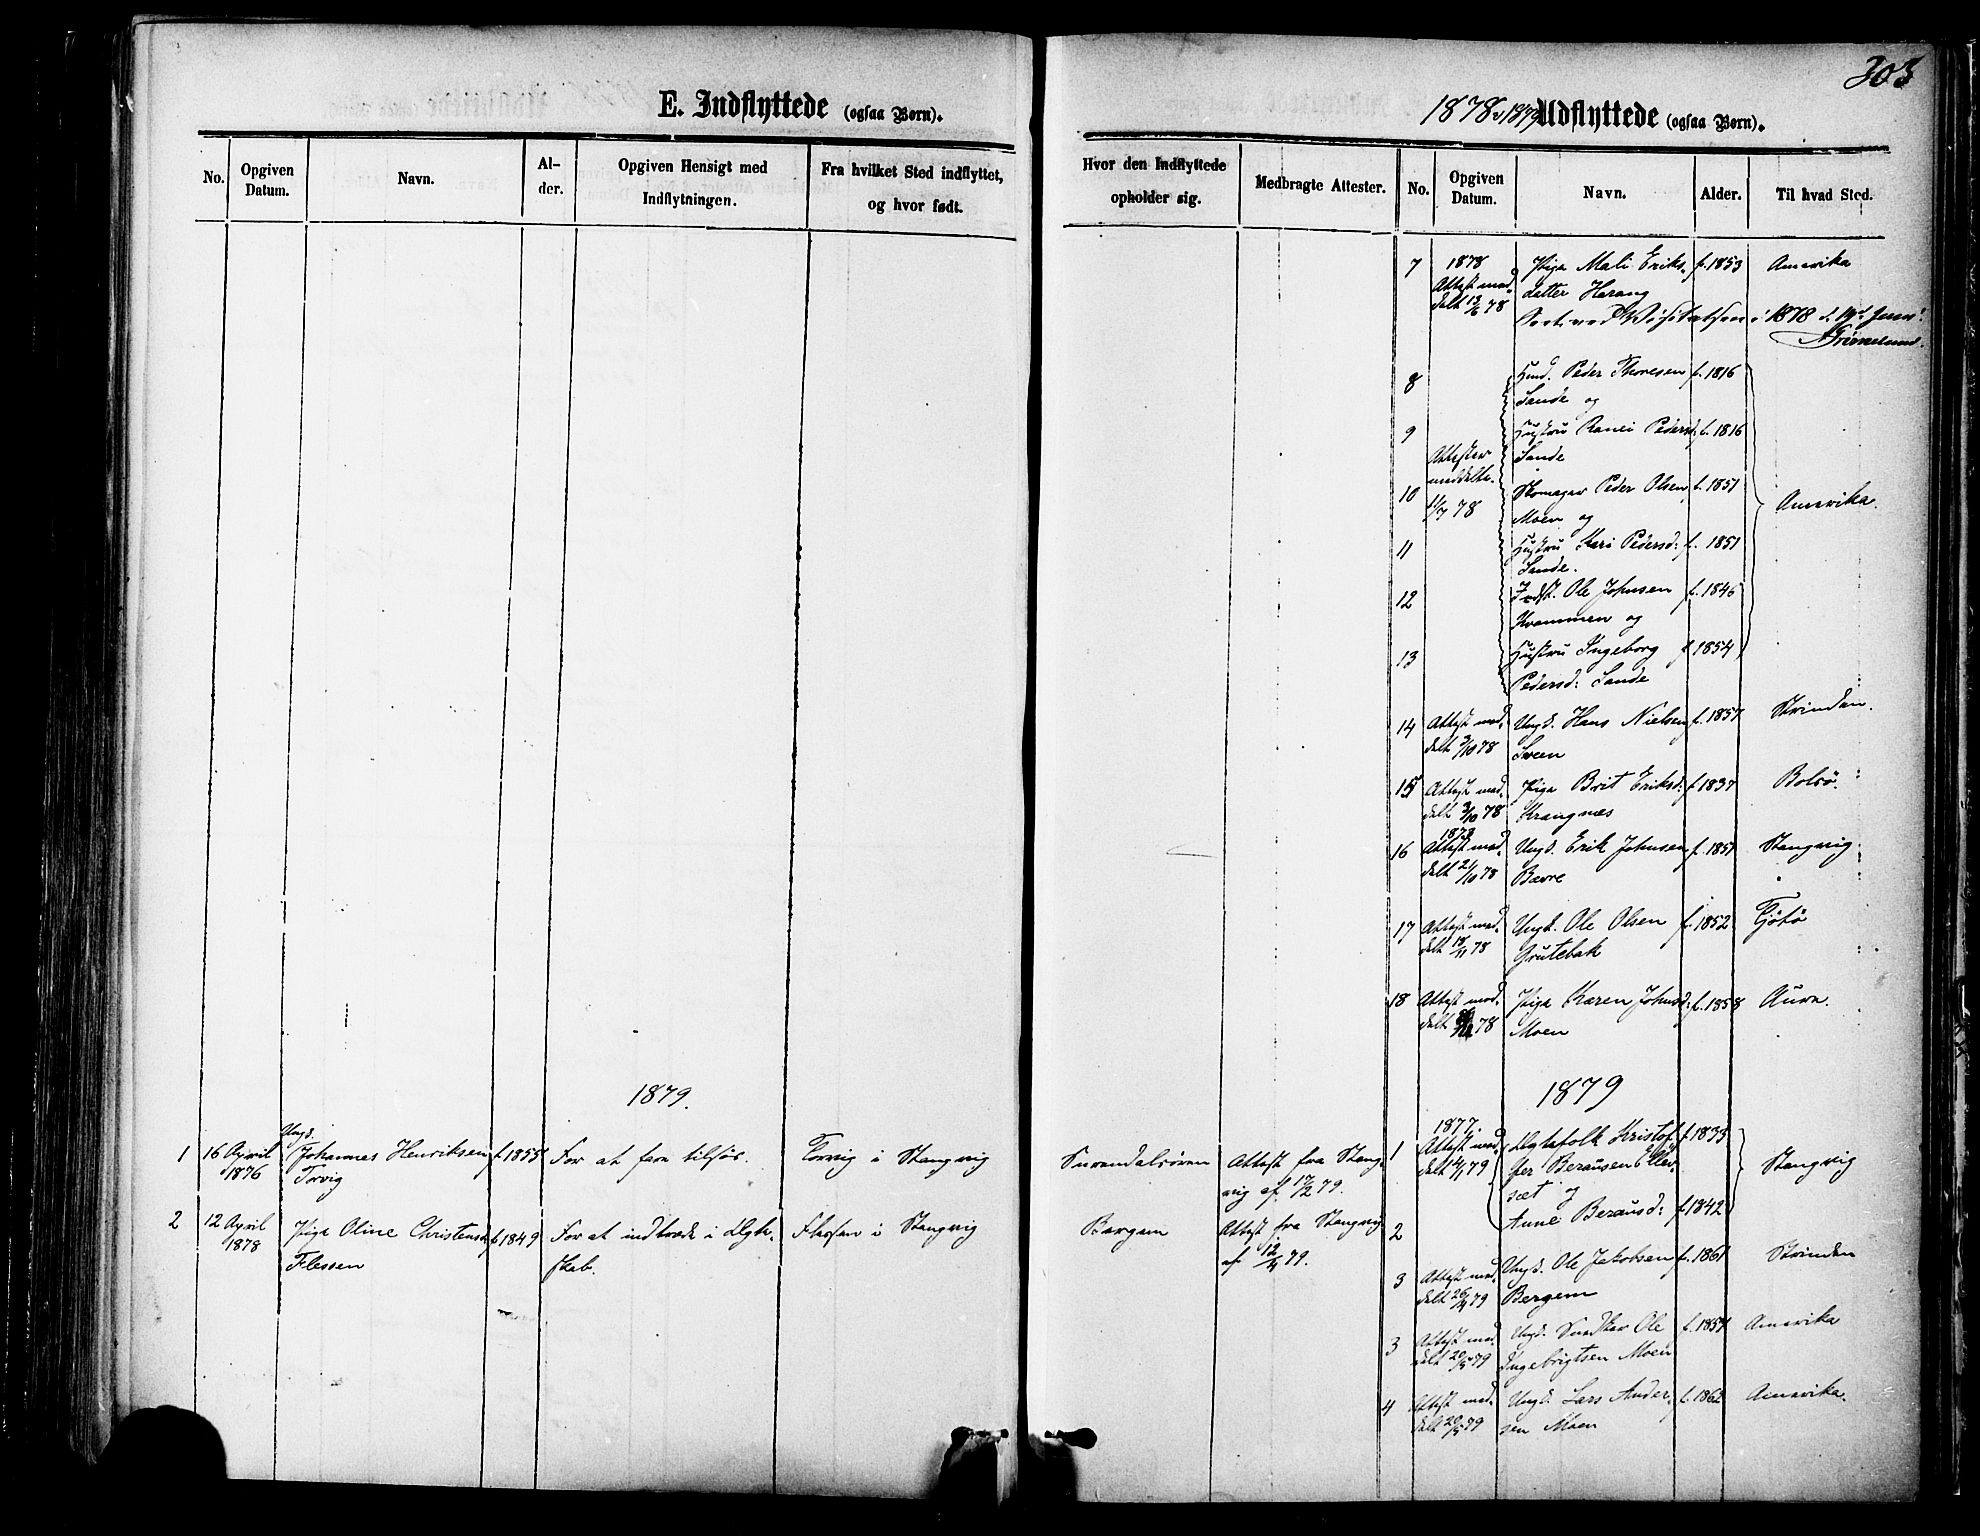 303
E. Indflyttede (ogsaa Børn).
No.
Opgiven Datum.
Navn.
Al-
der.
Opgiven Hensigt med
Indflytningen.
Fra hvilket Sted indflyttet,
og hvor født.
1879.
1
16 April
1876
Ungk.
Johannes Henriksen
Torvig
f. 1855
For at fare tilsøs.
Torvig i Stangvig
2
12 April
1878
Pige Oline Christensd.
Flessen
f. 1849
For at indtræde i Ægte-
skab.
Flessen i Stangvig
1878 & 1879
Udflyttede (ogsaa Børn).
Hvor den Indflyttede
opholder sig.
Medbragte Attester.
No.
Opgiven
Datum.
Navn.
Alder.
Til hvad Sted.
Surendalsøren
Attest fra Stang-
vig af 17/2 79.
Bergem
Attest fra Stangvig
af 12/4 79.
7
1878
Attest med-
delt 13/6 78
Pige Mali Eriks-
datter Harang
f. 1853
Amerika
1878 d. 19d Juni.
8
Peder Thoresen
Sande og
f. 1816
9
Hustru Ranei Pedersd.
Sande
f. 1816
Attester
meddelte
11/7 78
10
Skomager Peder Olsen
Moen og
f. 1851
Amerika.
11
Hustru Kari Pedersd:
Sande.
f. 1851
12
Indst. Ole Johnsen
Kvammen og
f. 1846
13
Hustru Ingeborg
Pedersd: Sande
f. 1854
14
Attest med-
delt 3/10 78
Ungk. Hans Nielsen
Sveen
f. 1857
Strinden.
15
Attest med-
delt 3/10 78
Pige Brit Eriksd:
Krangnæs
f. 1837
Bolsø.
16
1878
Attest med-
delt 21/10 78
Ungk. Erik Johnsen
Bævre
f. 1857
Stangvig.
17
Attest med-
delt 18/11 78
Ungk. Ole Olsen
Grutebak
f. 1852
Tjøtø
18
Attest med-
delt 78
Pige Karen Johnsd:
Moen
f. 1858
Aure.
1879
1
1877.
Attest med-
delt 14/1 79
Ægtefolk Kristof-
fer Berausen Ellev-
sæt og
f. 1833
Stangvig
2
Anne Berausd:
f. 1842
3
Attest med-
delt 26/4 79
Ungk. Ole Jakobsen
Bergem
f. 1861
Strinden
3
Attest med-
delt 20/5 79
Ungk. Snedker Ole
Ingebrigtsen Moen
f. 1857
Amerika
4
Attest med-
delt 20/5 79
Ungk. Lars Ander-
sen Moen
f. 1862
Amerika.